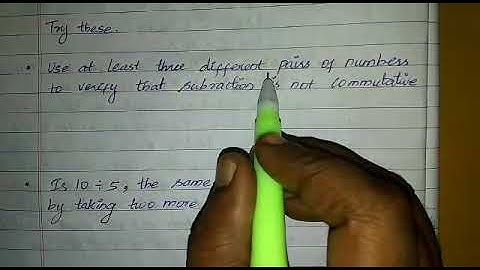 Try these.
• Use at least three different pairs of numbers
to verify that subraction is not commutative
• Is 10 ÷ 5, the same
by taking two more